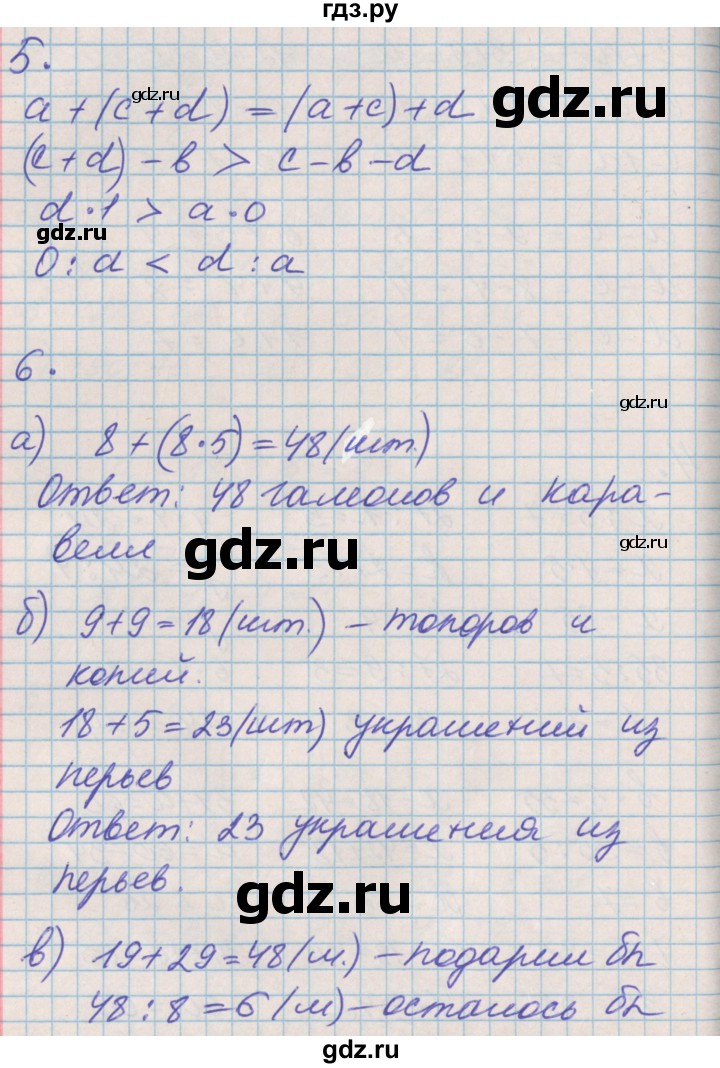 гдз.ру
5.
a + (c + d) = (a + c) + d
gdz.ru
gdz.ru
(c + d) - в > c - в - d
d · 1 > a · 0
gdz.ru
0 : d < d : a
6.
gdz.ru
а) 8 + (8 · 5) = 48 (шт.)
Ответ: 48 галеонов и кара-
велл
gdz.ru
gdz.ru
б) 9 + 9 = 18 (шт.) – топоров и
копий.
18 + 5 = 23 (шт) украшений из
перьев
Ответ: 23 украшения из
перьев.
gdz.ru
в) 19 + 29 = 48 (м.) – подарил бы
48 : 8 = 6 (м) – осталось бы
gdz.ru